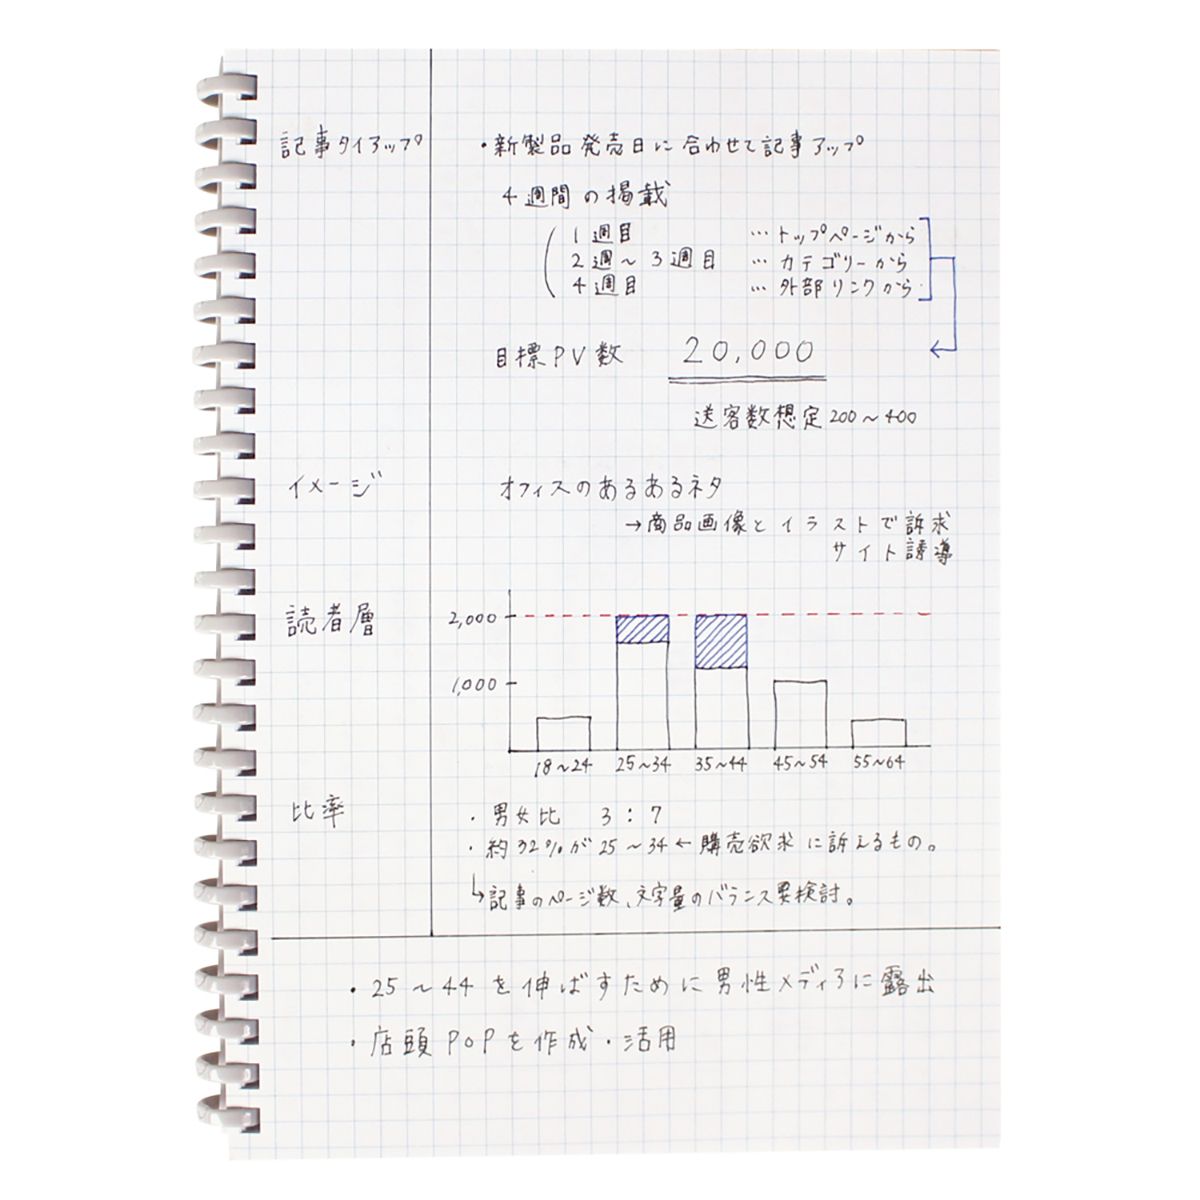 記事タイアップ ・新製品発売日に合わせて記事アップ
4週間の掲載
1週目 … トップページから
2週～3週目 … カテゴリーから
4週目 … 外部リンクから
目標PV数 20,000
送客数想定200～400
イメージ オフィスのあるあるネタ
→商品画像とイラストで訴求
サイト誘導
読者層
2,000
1,000
18～24 25～34 35～44 45～54 55～64
比率 ・男女比 3:7
・約32%が25～34←購売欲求に訴えるもの。
↳記事のページ数、文字量のバランス要検討。
・25～44を伸ばすために男性メディアに露出
・店頭POPを作成・活用